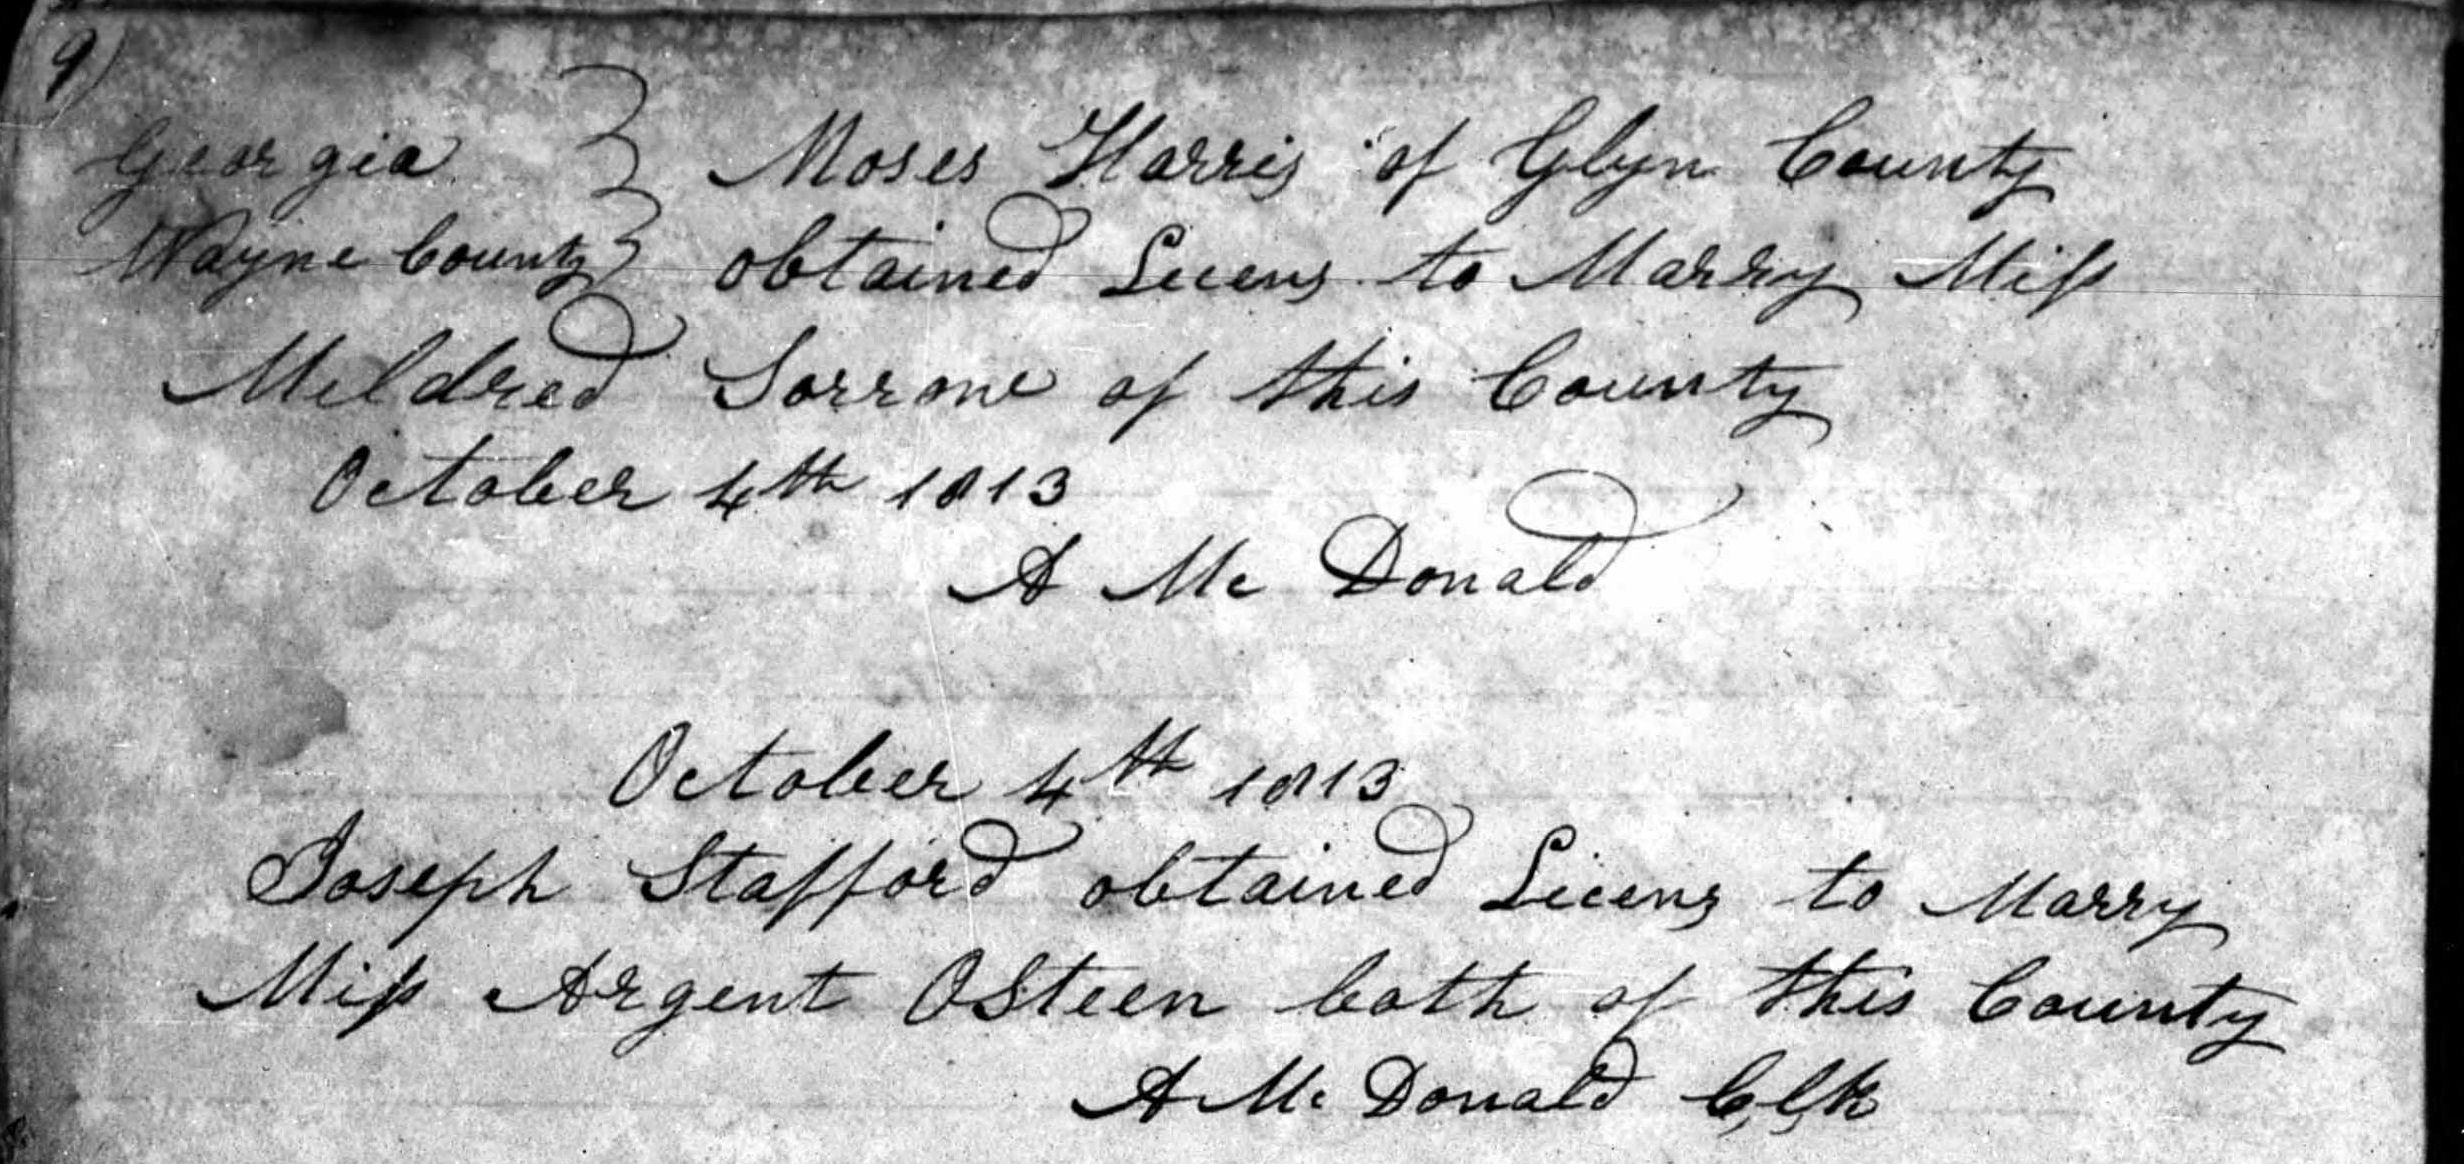 9)
Georgia } Moses Harris of Glyn County
Wayne County } obtained Licens to Marry Miss
Mildred Sorrow of this County
October 4th 1813
A Mc Donald
October 4th 1813
Joseph Stafford obtained Licens to Marry
Miss Argent OSteen both of this County
A Mc Donald C,l,k